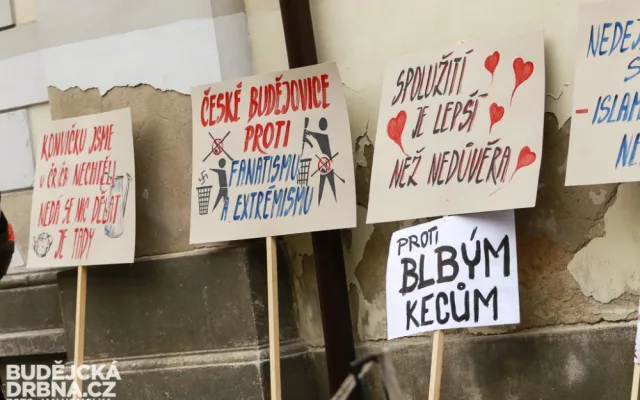 KONVIČKU JSME
NECHTĚLI
NEDÁ SE NIC DĚLAT
JE TADY
ČESKÉ BUDĚJOVICE
PROTI
FANATISMU
A EXTRÉMISMU
SPOLUŽITÍ
JE LEPŠÍ
NEŽ NEDŮVĚRA
PROTI
BLBÝM
KECŮM
NEDEJ
S
-ISLAM
NE
BUDĚJCKÁ
DRBNA.CZ